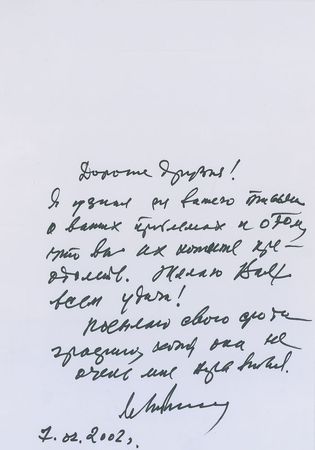 Дорогие друзья!
Я узнал из вашего письма
о ваших проблемах и о том,
что вы их хотите пре-
одолеть. Желаю Вам
всем удачи!
Посылаю свою фото
графию, хотя она не
очень мне нравится.
7.02.2002г.